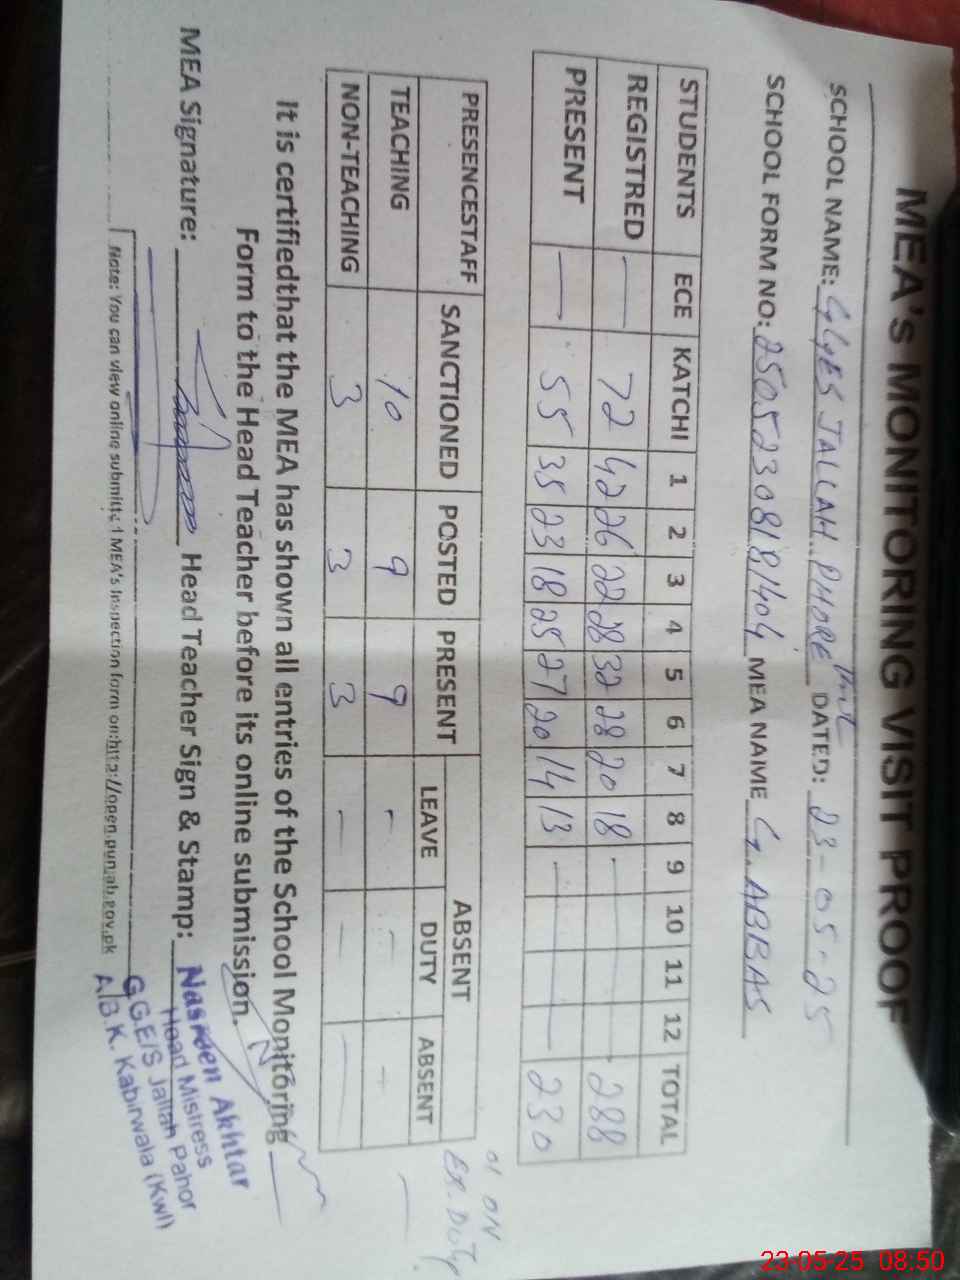 MEA's MONITORING VISIT PROOF
SCHOOL NAME: GGES JALLAH PHORE DATED: 23-05-25
SCHOOL FORM NO: 250523081814O4 MEA NAME G. ABBAS
STUDENTS ECE KATCHI 1 2 3 4 5 6 7 8 9 10 11 12 TOTAL
REGISTRED — 72 42 26 22 28 32 28 20 18 — 288
PRESENT — 55 35 23 18 25 27 20 14 13 — 230
PRESENCESTAFF SANCTIONED POSTED PRESENT ABSENT
LEAVE DUTY ABSENT
TEACHING 10 9 9 - - -
NON-TEACHING 3 3 3 - - -
01 ON
Ex. Duty
It is certifiedthat the MEA has shown all entries of the School Monitoring
Form to the Head Teacher before its online submission.
MEA Signature: Head Teacher Sign & Stamp:
Nasreen Akhtar
Head Mistress
G.G.E/S Jallah Pahor
A.B.K. Kabirwala (Kwl)
Note: You can view online submitted MEA's Inspection form on:http://open.punjab.gov.pk
23-05-25 08:50